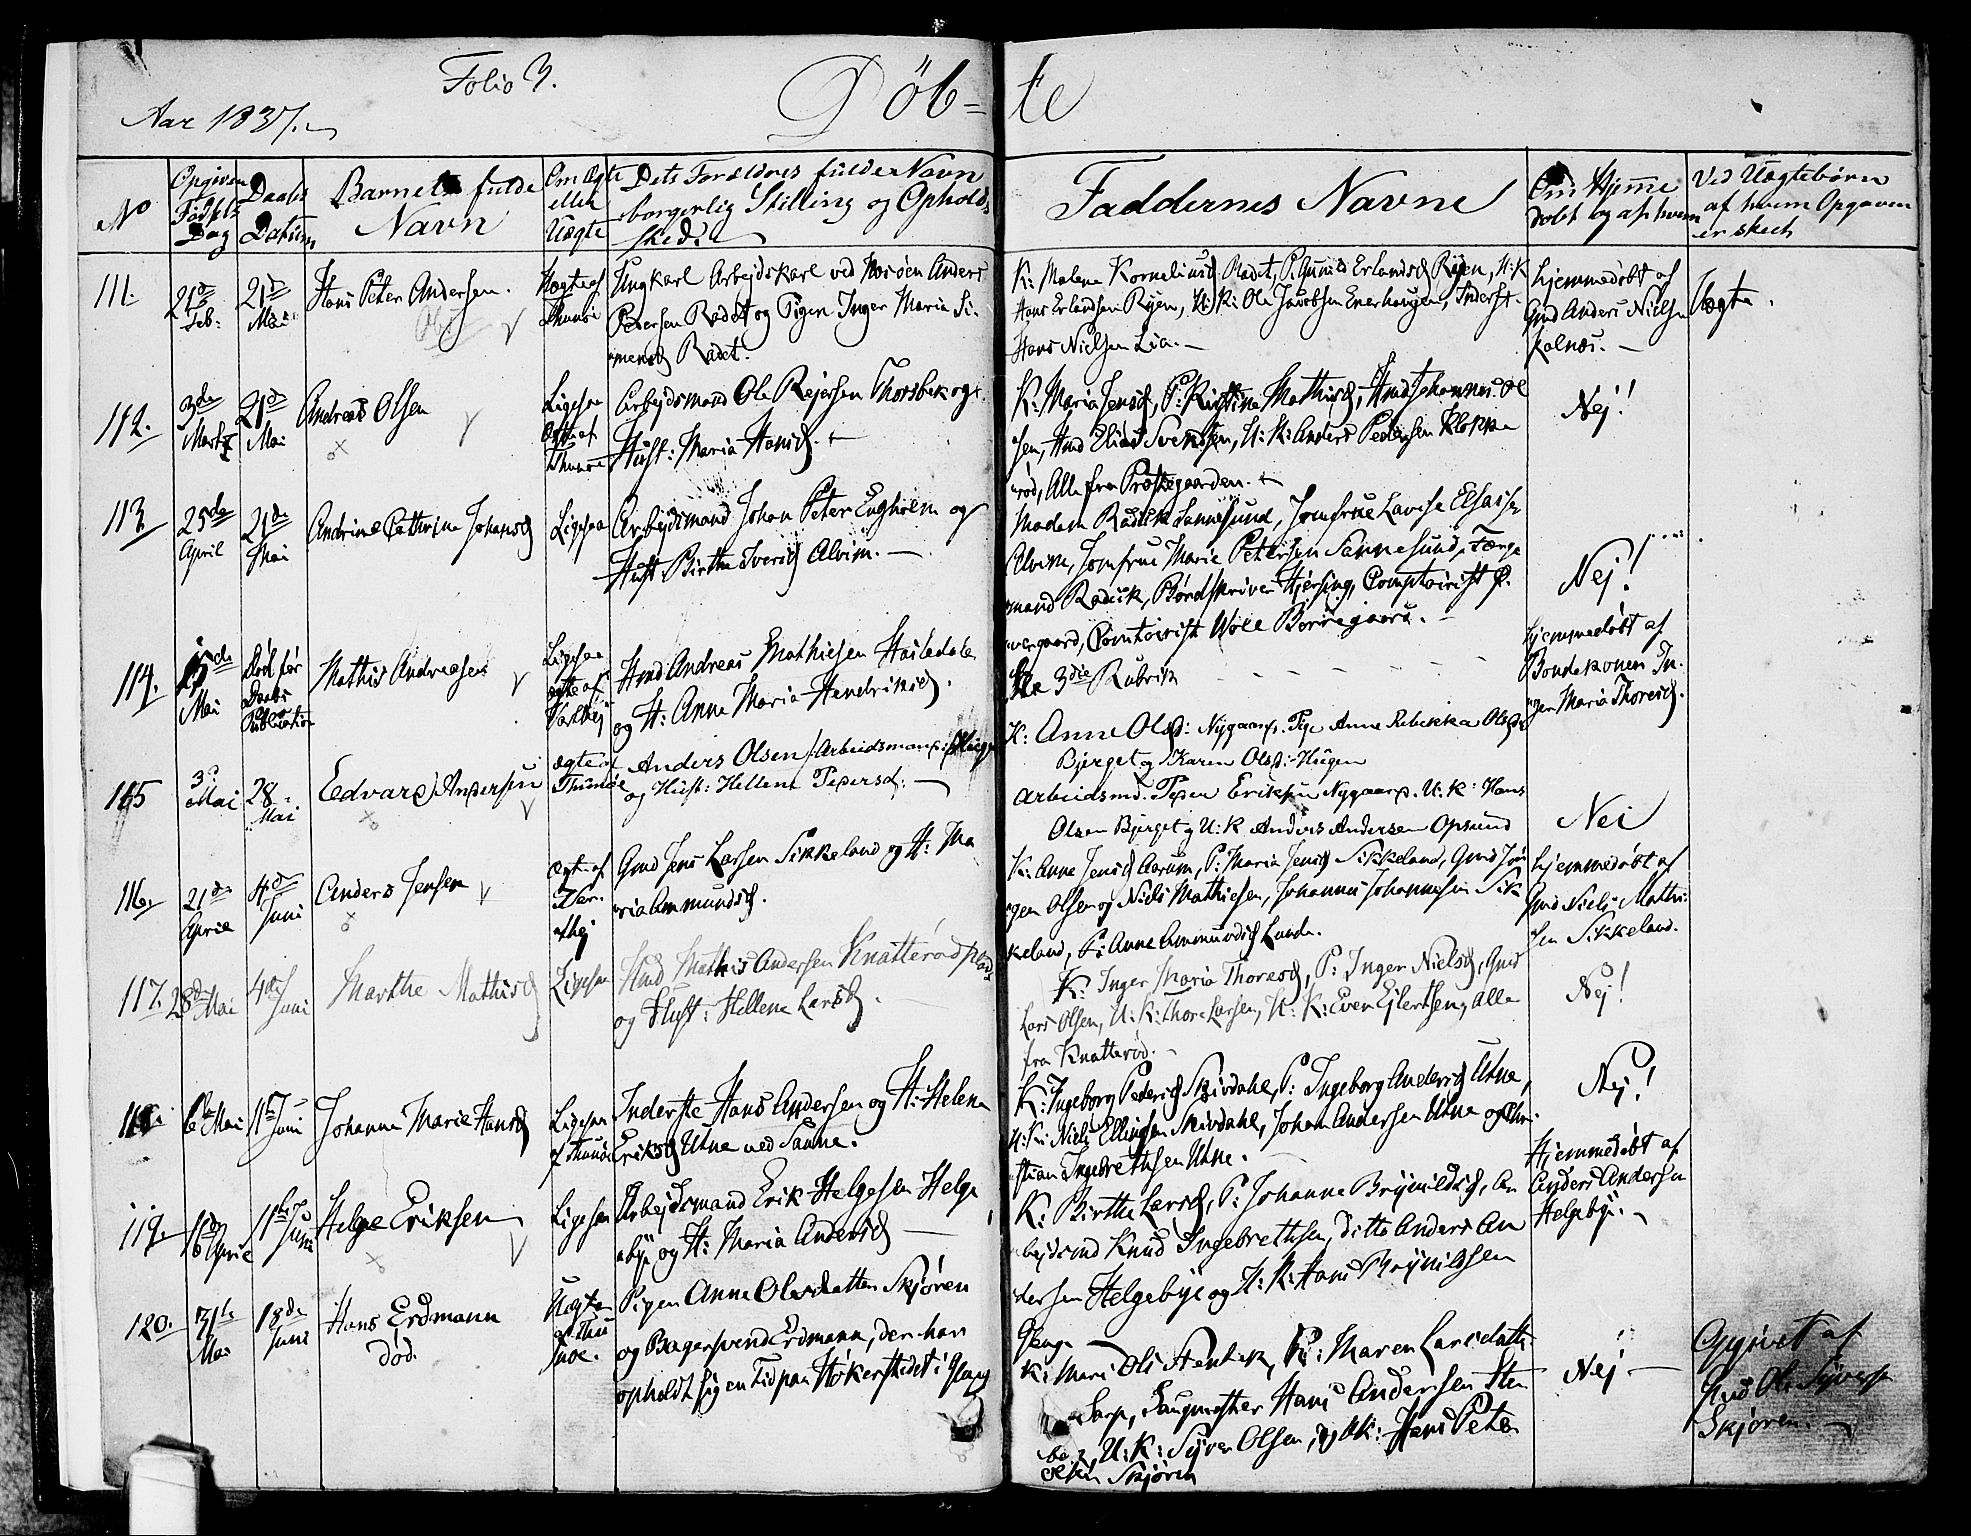 Folio 3.
Döb=te
Aar 1837.
No
Opgiven Födsels Dag
Daabs Datum
Barnets fulde Navn
Om Ægte eller Uægte
Dets Forældres fulde Navn borgerlig Stilling og Opholds sted.
Faddernes Navne
Om Hjemme döbt og af hvem
Ved Uægtebörn af hvem Opgaven er skeet
111.
21de Feb:
21de Mai
Hans Peter Andersen.
Uægte af Thunöe
Ungkarl Arbejdskarl ved Anders
Pedersen Radet og Pigen Inger Maria Si-
mensd Radet.
K: Malene Korneliusd Radet, P: Gunild Erlandsd Ryen, U:K
Hans Erlandsen Ryen, U:K: Ole Jacobsen Enerhaugen, Inderst
Hans Nielsen Lia.
Hjemmedöbt af
Gmd Anders Nielsen
Kalnæs.
Uægte.
112.
3de Martz
21de Mai
Andreas Olsen
Ligesaa
Ægte af
Thunöe
Arbejdsmand Ole Rejersen Thorsbek og
Hust: Maria Hansd.
K: Maria Jensd, P: Kristine Mathisd, Hmd Johannes Ol
sen, Hmd Elias Svendsen, U:K: Anders Pedersen Klokke
röd, Alle fra Præstegaarden.
Nej!
113.
25de April
21de Mai
Andrine Cathrine Johansd
Ligesaa
Arbejdsmand Johan Peter Engholm og
Hust Birthe Iversd Alvim.
Madam Radich Sannesund, Jomfrue Lovise Elsasser
Alvim, Jomfrue Marie Petersen Sannesund, Færge
mand Radich, Bordskriver Hjersing, Comptoirist
Comtoirist Wole Borregaard.
Nej!
114.
15de Mai
Död för
Daabs
Publication
Mathis Andreasen
Ligesaa
ægte af
Varthej
Hmd Andreas Mathiesen Hasledalen
og H: Anne Maria Hendriksd.
Se 3die Rubrik
Hjemmedöbt af
Bondekonen In-
ger Maria Thoresd.
115
3die Mai
28 Mai
Edvard Andersen
ægte af
Thunöe
Anders Olsen Arbeidsmand
og Hust: Hellene Pedersd:
K: Anne Olsd: Nygaard. Pige Anne Rebekka Olsd:
Bjerget og Karen Olsd: Haugen
Arbeidsmd. Peder Eriksen Nygaard. U:K: Hans
Olsen Bjerget og U:K Anders Andersen Opsund
Nei
116.
21de April
4de Juni
Anders Jensen
Ægte af
Var-
thej
Gmd Jens Larsen Sikkeland og H: Ma
ria Ammundsd.
K: Anne Jensd Aarum, P: Maria Jensd Sikkeland, Gmd Jör
gen Olsen og Niels Mathiesen, Johannes Johannesen Sik
keland, P: Anne Ammundsd Lunde.
Hjemmedöbt af
Gmd Niels Mathi-
sen Sikkeland.
117.
28de Mai
4de Juni
Marthe Mathisd
Ligesaa
Hmd Mathis Andersen Knatteröd plads
og Hust: Hellene Larsd.
K: Inger Maria Thoresd, P: Inger Nielsd, Gmd
Lars Olsen, U:K: Thore Larsen, U:K: Even Ejlertsen, Alle
fra Knatteröd.
Nej!
118.
6te Mai
11te Juni
Johanne Marie Hansd
Ligesaa
af Thunöe
Inderste Hans Andersen og H: Helene
Eriksd Utne ved Sanne.
K: Ingeborg Pedersd Skivdahl, P: Ingeborg Andersd Utne,
U:K: Niels Ellingsen Skivdahl, Johan Andersen Utne og Chri-
stian Ingebrethsen Utne.
Nej!
119.
16de April
11te Juni
Helge Eriksen
Ligesaa
Arbejdsmand Erik Helgesen Helge
bye og H: Maria Andersd
K: Birthe Larsd, P: Johanne Brynildsd, Ar
bejdsmd Knud Ingebrethsen, ditto Anders An
dersen Helgebye og U:K: Hans Brynildsen
Hjemmedöbt af
Anders Andersen
Helgebye.
120.
31te Mai
18de Juni
Hans Erdmann
död.
Uægte
af Thu
nöe.
Pigen Anne Olesdatter Skjören
og Bagersvend Erdmann, der har
opholdt sig en Tid paa Hökerstedet i
K: Mari Ols P: Maren Larsdatter
Sarp, Saugmester Hans Andersen
U:K: Syver Olsen, og UK: Hans Peter
Skjören
Nej
Opgivet af
Gmd Ole Syversen
Skjören.